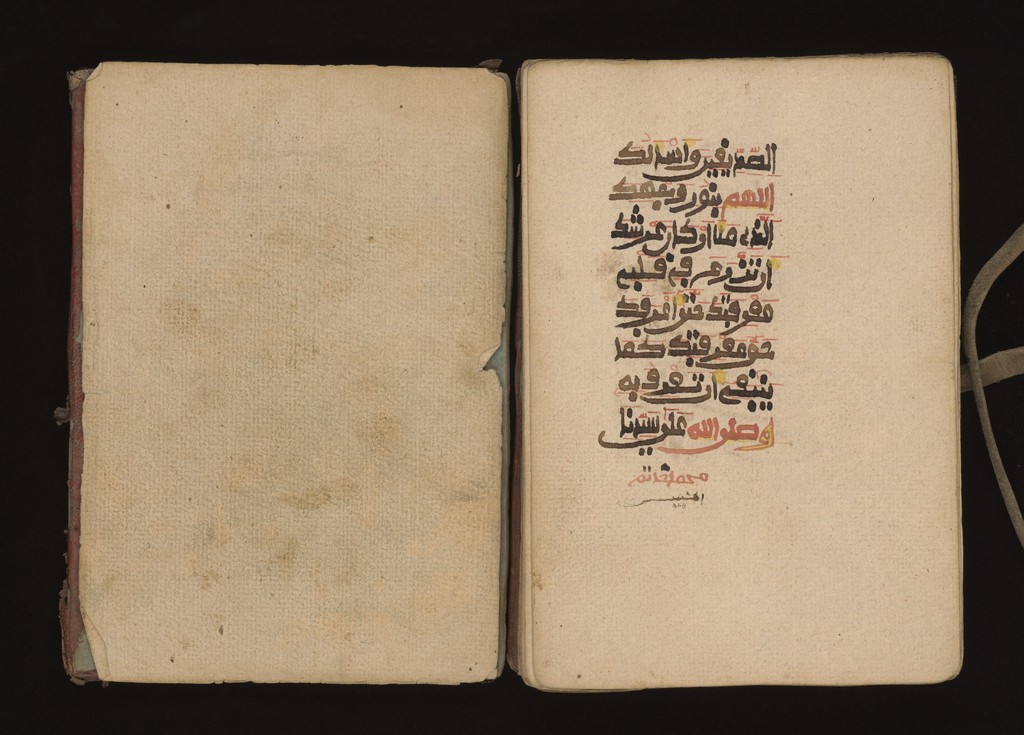 الصديقين واسالك
اللهم بنور وجهك
الذي ملا اركان عرشك
ان تزرع في قلبي
معرفتك حتى اعرفك
حق معرفتك كما
ينبغي ان تعرف به
وصلى الله على سيدنا
محمد خاتم